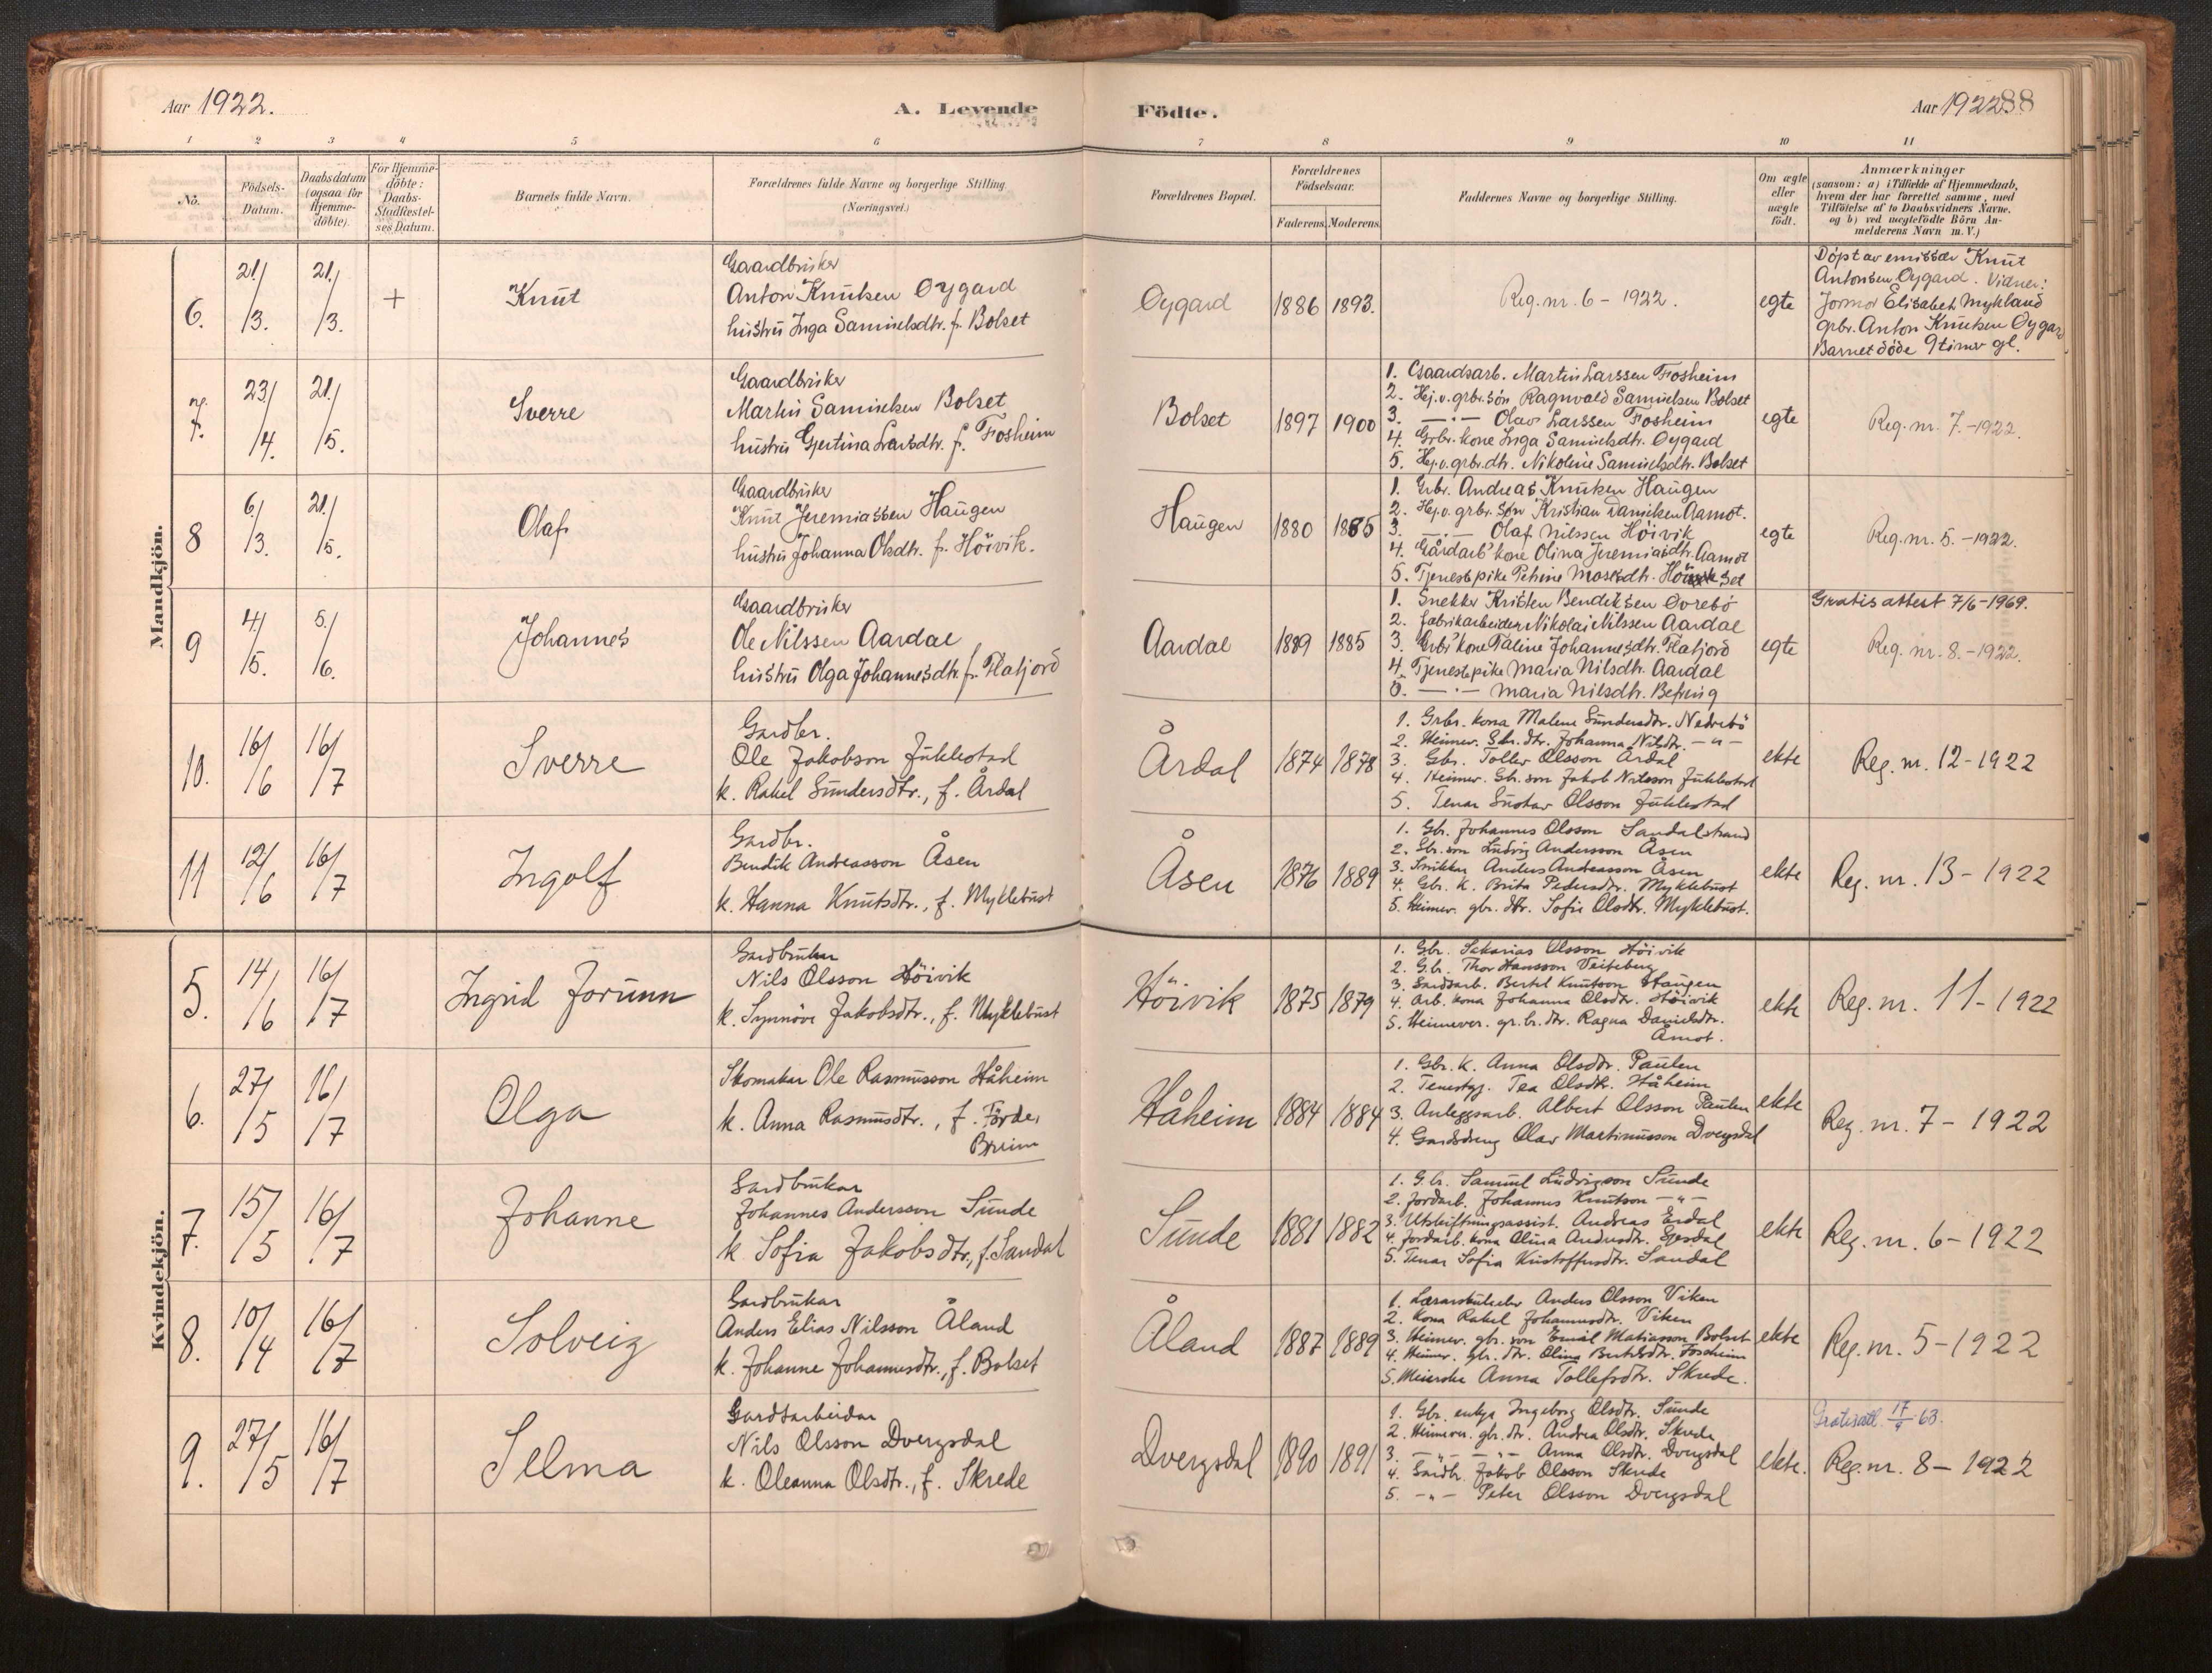 Aar 1922.
A. Levende
Födte.
Aar 1922. 88
1 2 3 4 5 6 7 8 9 10 11
No.
Födsels-
Datum.
Daabsdatum
(ogsaa for
Hjemme-
döbte).
For Hjemme-
döbte:
Daabs-
Stadfæstel-
ses Datum.
Barnets fulde Navn.
Forældrenes fulde Navne og borgerlige Stilling
(Næringsvei.)
Forældrenes Bopæl.
Forældrenes
Födselsaar.
Faderens. Moderens.
Faddernes Navne og borgerlige Stilling.
Om ægte
eller
uægte
født.
Anmærkninger
(saasom: a) i Tilfælde af Hjemmedaab,
hvem der har forrettet samme, med
Tilföielse af to Daabsvidners Navne.
og b) ved uægtefödte Börn An-
melderens Navn m. V.)
Mandkjön.
6. 21/3. 21/3. + Knut
Gaardbruker
Anton Knutsen Oygard
hustru Inga Samuelsdtr. f. Bolset
Oygard 1886 1893.
Reg. nr. 6 - 1922.
egte
Döpt av emissær Knut
Antonsen Oygard. Vidner:
Jormor Elisabet Mykland
grbr. Anton Knutsen Oygard
Barnet döde 9 timer gl.
7. 23/4. 21/5. Sverre
Gaardbruker
Martin Samuelsen Bolset
hustru Gjertina Larsdtr. f. Fosheim
Bolset 1897 1900
1. Gaardsarb. Martin Larssen Fosheim
2. Hj.v. grbr. sön Ragnvald Samuelsen Bolset
3. —·— Olav Larssen Fosheim
4. Grbr. kone Inga Samuelsdtr. Oygard
5. Hj.v. grbr. dtr. Nikoline Samuelsdtr. Bolset
egte
Reg. nr. 7. - 1922.
8 6/3. 21/5. Olaf
Gaardbruker
Knut Jeremiassen Haugen
hustru Johanna Olsdtr. f. Höivik.
Haugen 1880 1885
1. Grbr. Andreas Knutsen Haugen
2. Hj.v. grbr. sön Kristian Danielsen Aamot.
3. —·— Olaf Nilssen Höivik
4. Gårdarb. kone Olina Jeremiasdtr. Aamot
5. Tjenestepike Petrine Mosesdtr.
egte
Reg. nr. 5. - 1922.
9 4/5. 5/6. Johannes
Gaardbruker
Ole Nilssen Aardal
hustru Olga Johannesdtr. f. Flatjord
Aardal 1889 1885
1. Snekker Kristen Bendiksen Ovrebö
2. Fabrikarbeider Nikolai Nilssen Aardal
3. Grbr. kone Taline Johannesdtr. Flatjord
4. Tjenestepike Maria Nilsdtr. Aardal
5. —·— Maria Nilsdtr. Befring
egte
Gratis attest 7/6 - 1969.
Reg. nr. 8. - 1922.
10. 16/6 16/7 Sverre
Gardbr.
Ole Jakobson Jüklestad
k. Rakel Sundersdtr., f. Årdal
Årdal 1874 1878
1. Grbr. kona Malene Sundersdtr. Nedrebö
2. Heimev. Gbr. dtr. Johanna Nilsdtr. —"—
3. Gbr. Tollev Olsson Årdal
4. Heimev. Gbr. son Jakob Nilsson Jüklestad
5. Tenar Gustav Olsson Jüklestad
ekte
Reg. nr. 12 - 1922
11 12/6 16/7 Ingolf
Gardbr.
Bendik Andreasson Åsen
k. Hanna Knutsdtr., f. Myklebust
Åsen 1876 1889
1. Gbr. Johannes Olsson Sandalstrand
2. Gbr. son Ludvig Andersson Åsen
3. Snikkar Anders Andreasson Åsen
4. Gbr. k. Brita Pedersdtr. Myklebust
5. Heimev. gbr. dtr. Sofie Olsdtr. Myklebust.
ekte
Reg. nr. 13 - 1922
Kvindekjön.
5. 14/6 16/7 Ingrid Jorunn
Gardbrukar
Nils Olsson Höivik
k. Synnöve Jakobsdtr., f. Myklebust
Höivik 1875 1879
1. Gbr. Sakarias Olsson Höivik
2. G.br. Thor Hansson Veiteberg
3. Gardsarb. Bertel Knutson Haugen
4. Arb. kona Johanna Olsdtr. Höivik
5. Heimever. gr. br. dtr. Ragna Danielsdtr.
Åmot.
ekte
Reg. nr. 11 - 1922
6. 27/5 16/7 Olga
Skomakar Ole Rasmusson Håheim
k. Anna Rasmusdtr., f. Förde,
Breim
Håheim 1884 1884
1. Gbr. k. Anna Olsdtr. Paulen
2. Tenestgj. Tea Olsdtr. Håheim
3. Anleggsarb. Albert Olsson Paulen
4. Gardsdreng Olav Martinusson Dvergsdal
ekte
Reg. nr. 7 - 1922
7. 15/5 16/7 Johanne
Gardbrukar
Johannes Andersson Sunde
k. Sofia Jakobsdtr., f. Sandal
Sunde 1881 1882
1. G.br. Samuel Ludvigson Sunde
2. Jordarb. Johannes Knutson —"—
3. Utskiftningsassist. Andreas Eidal
4. Jordarb. kona Olina Andersdtr. Gjesdal
5. Tenar Sofia Kristoffersdtr. Sandal
ekte
Reg. nr. 6 - 1922
8. 10/4 16/7 Solveig
Gardbrukar
Anders Elias Nilsson Åland
k. Johanne Johannesdtr., f. Bolset
Åland 1887 1889
1. Anders Olsson Viken
2. Kona Rakel Johannesdtr. Viken
3. Heimev. gbr. son Emil Matiasson Bolset
4. Heimev. gbr. dtr. Olina Bertelsdtr. Fossheim
5. Meierske Anna Tollefsdtr. Skrede.
ekte
Reg. nr. 5 - 1922
9. 27/5 16/7 Selma
Gardsarbeidar
Nils Olsson Dvergsdal
k. Oleanna Olsdtr., f. Skrede
Dvergsdal 1890 1891
1. Gbr. enkje Ingeborg Olsdtr. Sunde
2. Heimever. gbr. dtr. Andrea Olsdtr. Skrede
3. —"— —"— Anna Olsdtr. Dvergsdal
4. Gardbr. Jakob Olsson Skrede
5. —"— Peter Olsson Dvergsdal
ekte.
Gratisatt. 17/9 - 63.
Reg. nr. 8 - 1922